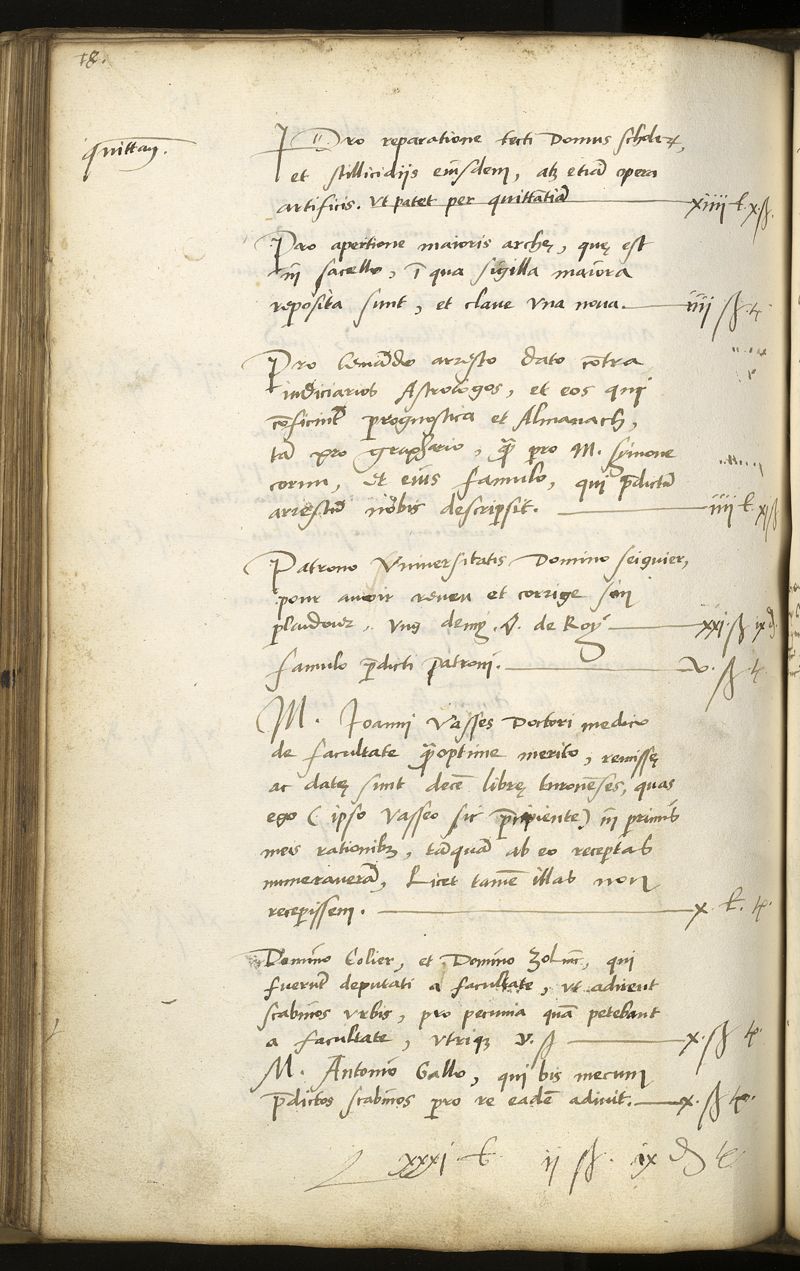 18.
quittan.
Pro reparatione tecti Domus scholarꝝ,
et stillicidijs eiusdem, atꝫ etiā opera
artificis. Ut patet per quittātiā xiiii ł xß.
Pro apertione maioris archę, quę est
in sacello, ī qua sigilla maiora
reposita sunt, et clave una nova. iiii ß. t.
Pro levando arresto dato cōtra
iudiciarios Astrologos, et eos qui
cōficiūt prognostica et Almanach,
tā pro graphario, quā pro M. Symone
et eius famulo, qui p̄dictū
arrestū nobis descripsit. iiii ł xß
Patrono Universitatis Domino seiguier,
pour avoir reveu et corrige son
plaidoier, ung demy. de Roy xxi ß ix d.
Famulo p̄dicti patroni. v. ß t.
M. Ioanni Vasses Doctori medico
de facultate quā optime merito, remissę
ac datę sunt decē librę turonēses, quas
ego (ipso Vasseo sic p̄cipiente) in primis
meis rationibꝫ, tāquā ab eo receptas
numeraverā, Licet tamē illas non
recepissem. x. ł. t.
Domino Colier, et Domino, qui
fuerūt deputati a facultate, ut adirent
scabinos urbis, pro pecunia quā petebant
a facultate, utriqꝫ v. ß x. ß t.
M. Antonio Gallo, qui bis mecum
p̄dictos scabinos pro re eadē adivit. x. ß t.
xxxi ł ii ß. ix d t.